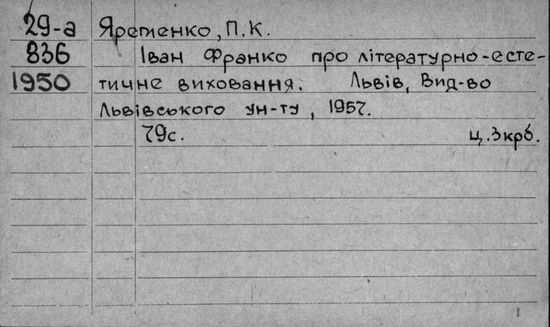 29-а Яременко, П.К.
836 Іван Франко про літературно-есте-
1950 тичне виховання. Львів, Вид-во
Львівського ун-ту, 1957.
79с. ц. 3крб.